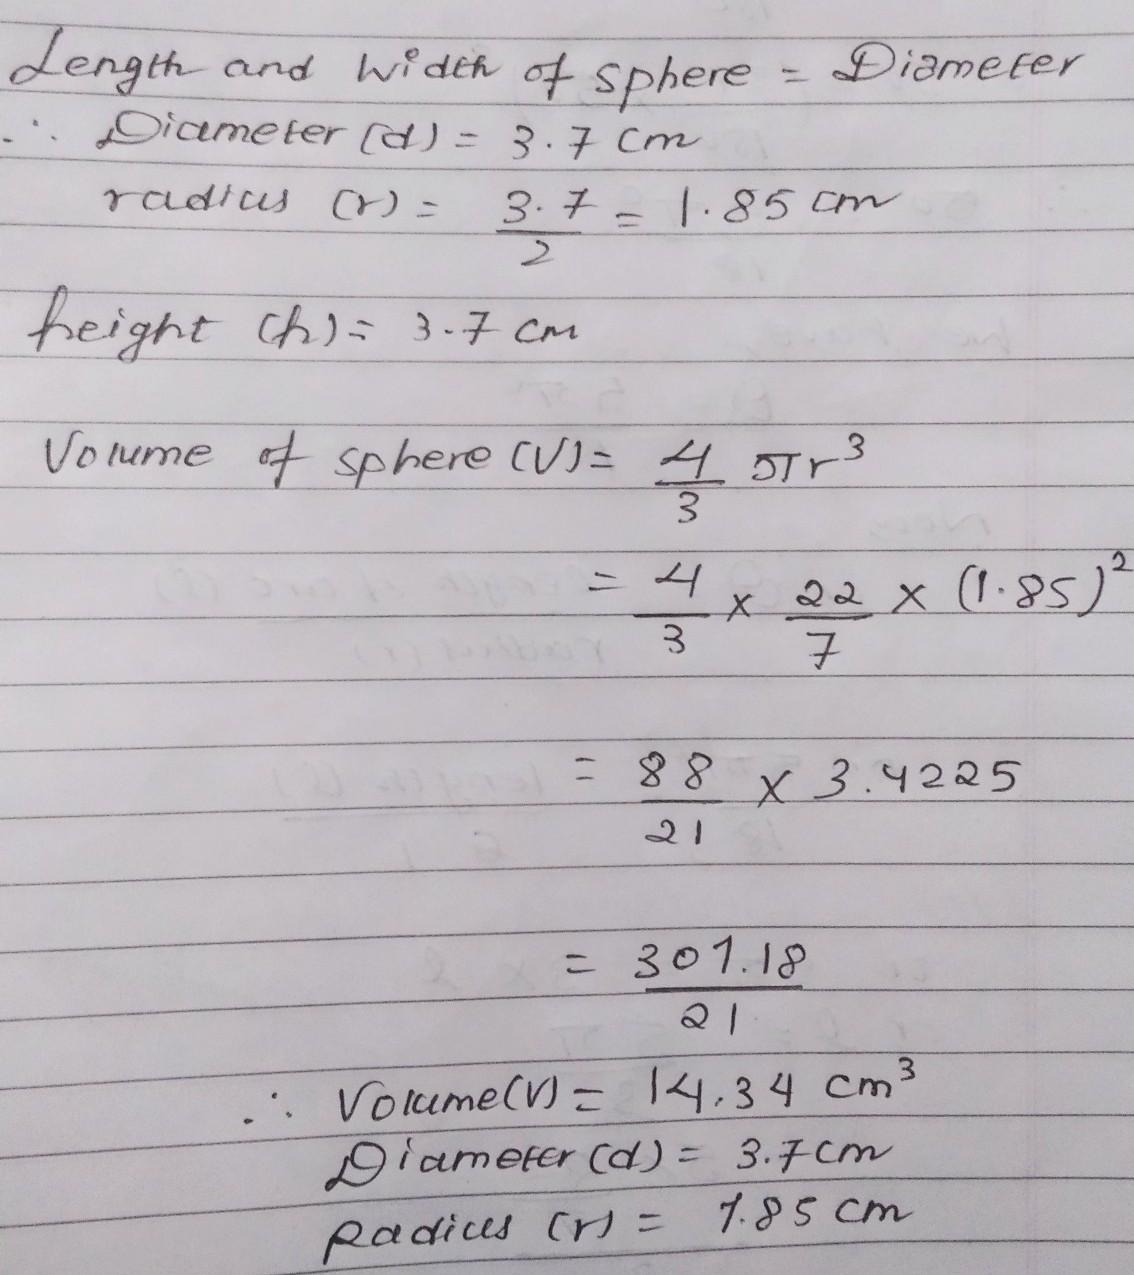 Length and Width of sphere = Diameter
∴ Diameter (d) = 3.7 cm
radius (r) = 3.7/2 = 1.85 cm
height (h) = 3.7 cm
Volume of sphere (V) = 4/3 πr³
= 4/3 × 22/7 × (1.85)²
= 88/21 × 3.4225
= 301.18/21
∴ Volume(V) = 14.34 cm³
Diameter (d) = 3.7cm
Radius (r) = 1.85 cm